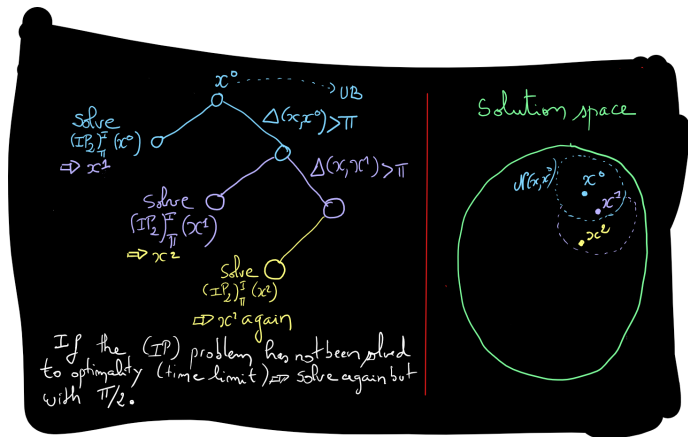 x⁰
UB
Δ(x,x⁰)>π
Solve
(IP₂)ᴵπ(x⁰)
⇒ x¹
Δ(x,x¹)>π
Solve
(IP₂)ᴵπ(x¹)
⇒ x²
Solve
(IP₂)ᴵπ(x²)
⇒ x² again
If the (IP) problem has not been solved
to optimality (time limit) ⇒ solve again but
with π/2.
Solution space
N(x,x⁰)
x⁰
x¹
x²